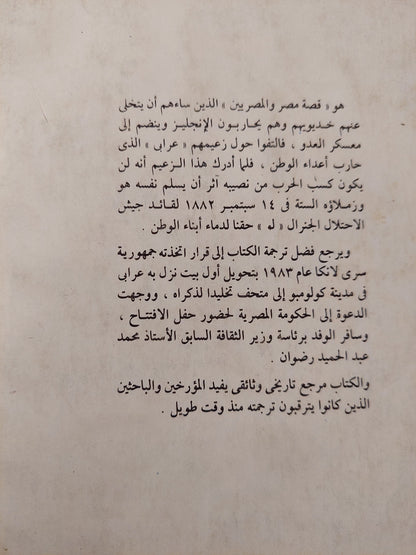 هو « قصة مصر والمصريين » الذين ساءهم أن يتخلى
عنهم خديويهم وهم يحاربون الإنجليز وينضم إلى
معسكر العدو ، فالتفوا حول زعيمهم « عرابى » الذى
حارب أعداء الوطن ، فلما أدرك هذا الزعيم أنه لن
يكون كسب الحرب من نصيبه آثر أن يسلم نفسه هو
وزملاؤه الستة فى ١٤ سبتمبر ١٨٨٢ لقائد جيش
الاحتلال الجنرال « لو » حقنا لدماء أبناء الوطن .
ويرجع فضل ترجمة الكتاب إلى قرار اتخذته جمهورية
سرى لانكا عام ١٩٨٣ بتحويل أول بيت نزل به عرابى
فى مدينة كولومبو إلى متحف تخليدا لذكراه ، ووجهت
الدعوة إلى الحكومة المصرية لحضور حفل الافتتاح ،
وسافر الوفد برئاسة وزير الثقافة السابق الأستاذ محمد
عبد الحميد رضوان .
والكتاب مرجع تاريخى وثائقى يفيد المؤرخين والباحثين
الذين كانوا يترقبون ترجمته منذ وقت طويل .